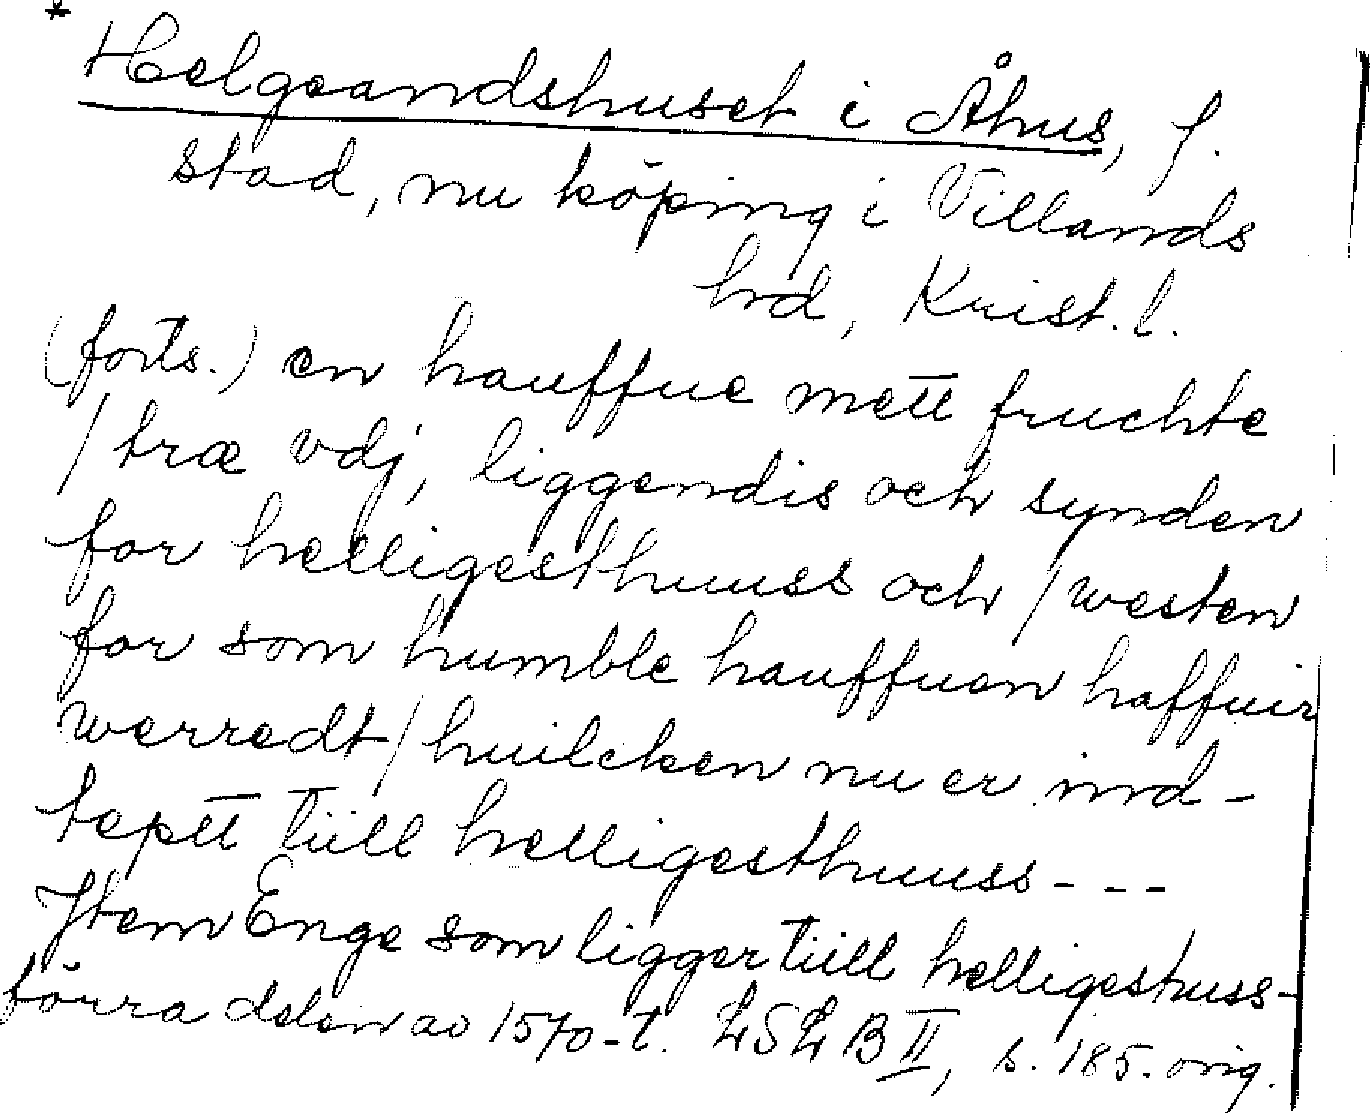 * Helgeandshuset i Åhus, f.
stad, nu köping i Villands
hrd, Krist. l.
(forts.) en hauffue mett fruchte
/ træ vdj, liggendis och synden
for helligesthuuss och / westen
for som humble hauffuen haffuir
werredt / huilcken nu er ind-
teptt tiill helligesthuuss - - -
Jtem Enge som ligger tiill helligeshuss -
förra delen av 1570-t. LSLB II, s. 185. orig.